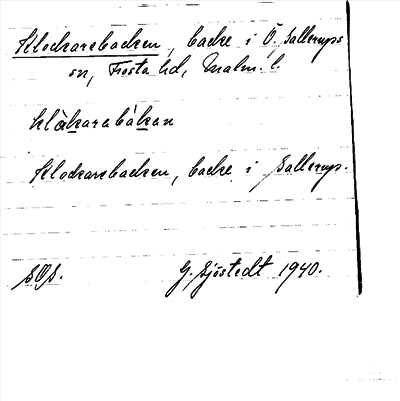 Klockarebacken, backe i Ö. Sallerups
sn, Frosta hd, Malm. l.
klåkarabàkan
Klockarebacken, backe i Sallerup.
SOS.
G. Sjöstedt 1940.